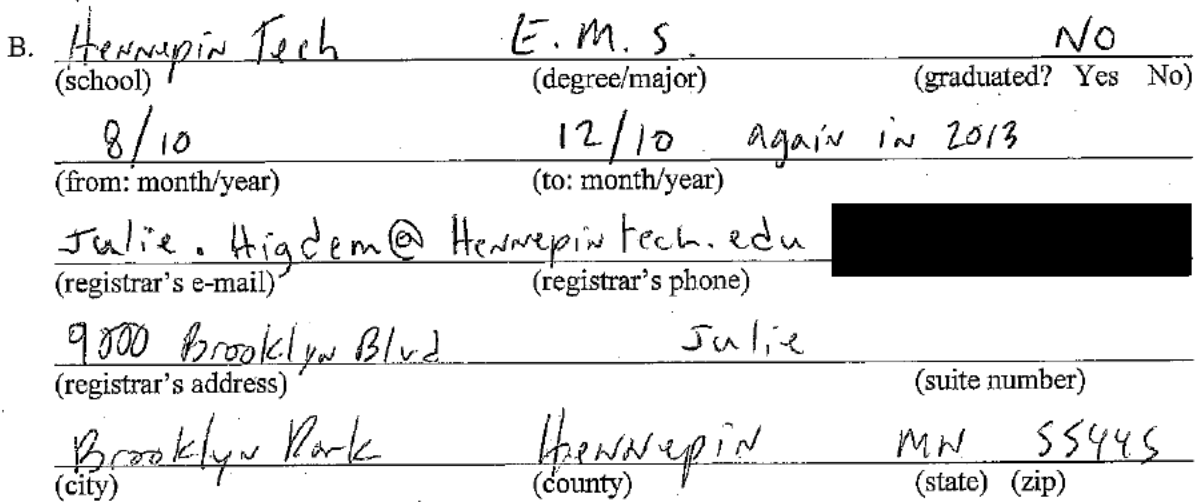 B. Hennepin Tech E.M.S. No
(school) (degree/major) (graduated? Yes No)
8/10 12/10 again in 2013
(from: month/year) (to: month/year)
Julie.Higdem@Hennepintech.edu
(registrar's e-mail) (registrar's phone)
9000 Brooklyn Blvd Julie
(registrar's address) (suite number)
Brooklyn Park Hennepin MN 55445
(city) (county) (state) (zip)